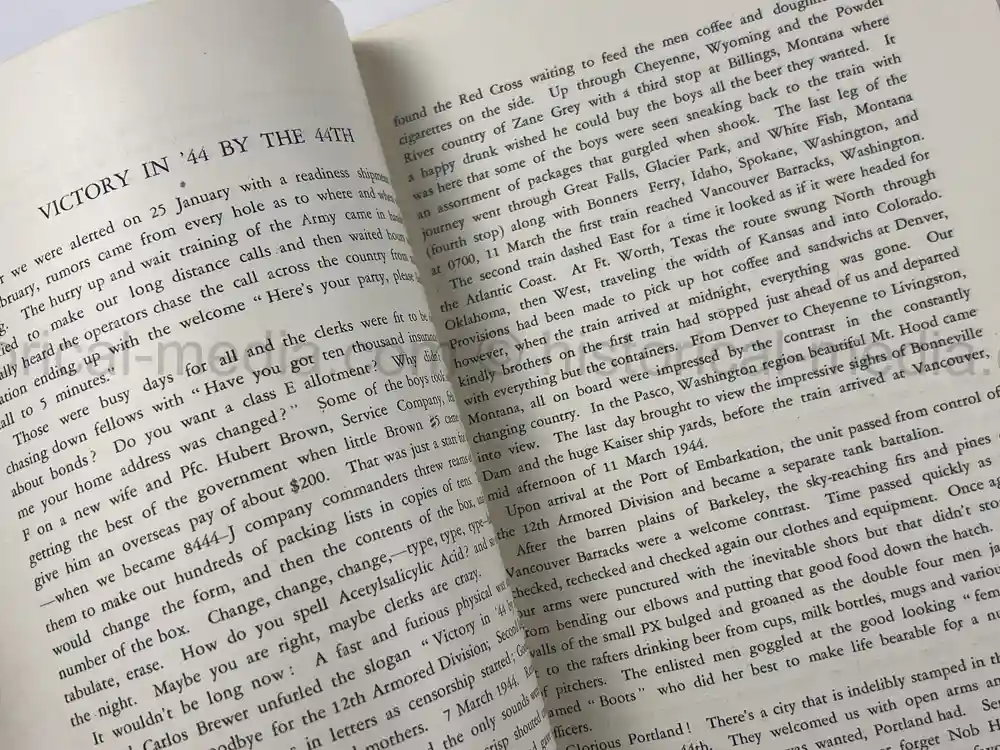 VICTORY IN '44 BY THE 44TH
we were alerted on 25 January with a readiness shipment
rumors came from every hole as to where and when
The hurry up and wait training of the Army came in
to make our long distance calls and then waited hours
heard the operators chase the call across the country from
ending up with the welcome "Here's your party, please
call to 5 minutes."
Those were busy days for all and the clerks were fit to be
chasing down fellows with "Have you got ten thousand insurance
about bonds? Do you want a class E allotment? Why didn't
me your home address was changed?" Some of the boys took
F on a new wife and Pfc. Hubert Brown, Service Company,
getting the best of the government when little Brown #5 came
give him an overseas pay of about $200. That was just a start
—when we became 8444-J company commanders threw reams
them to make out hundreds of packing lists in copies of tens
would change the form, and then the contents of the box,
number of the box. Change, change, change,—type, type, type—
tabulate, erase. How do you spell Acetylsalicylic Acid? and
the night. Maybe you are right, maybe clerks are crazy.
It wouldn't be long now: A fast and furious physical
Carlos Brewer unfurled the slogan "Victory in '44 by
for the 12th Armored Division; Second
in letters as censorship started;
mothers. 7 March 1944.
the only sounds
crisp shouted
found the Red Cross waiting to feed the men coffee and
cigarettes on the side. Up through Cheyenne, Wyoming and the Powder
River country of Zane Grey with a third stop at Billings, Montana where
a happy drunk wished he could buy the boys all the beer they wanted. It
was here that some of the boys were seen sneaking back to the train with
an assortment of packages that gurgled when shook. The last leg of the
journey went through Great Falls, Glacier Park, and White Fish, Montana
(fourth stop) along with Bonners Ferry, Idaho, Spokane, Washington, and
at 0700, 11 March the first train reached Vancouver Barracks, Washington.
The second train dashed East for a time it looked as if it were headed for
the Atlantic Coast. At Ft. Worth, Texas the route swung North through
Oklahoma, then West, traveling the width of Kansas and into Colorado.
Provisions had been made to pick up hot coffee and sandwiches at Denver,
however, when the train arrived at midnight, everything was gone. Our
kindly brothers on the first train had stopped just ahead of us and departed
with everything but the containers. From Denver to Cheyenne to Livingston,
Montana, all on board were impressed by the contrast in the constantly
changing country. In the Pasco, Washington region beautiful Mt. Hood came
into view. The last day brought to view the impressive sights of Bonneville
Dam and the huge Kaiser ship yards, before the train arrived at Vancouver,
mid afternoon of 11 March 1944.
Upon arrival at the Port of Embarkation, the unit passed from control of
the 12th Armored Division and became a separate tank battalion.
After the barren plains of Barkeley, the sky-reaching firs and pines
Vancouver Barracks were a welcome contrast. Time passed quickly as
checked, rechecked and checked again our clothes and equipment. Once
our arms were punctured with the inevitable shots but that didn't
from bending our elbows and putting that good food down the hatch.
walls of the small PX bulged and groaned as the double four men
to the rafters drinking beer from cups, milk bottles, mugs and
of pitchers. The enlisted men goggled at the good looking
named "Boots" who did her best to make life bearable for a
officers.
Glorious Portland! There's a city that is indelibly stamped in
44th. They welcomed us with open arms
was wanted, Portland had.
forget Nob
historical-media.com © historical-media.com